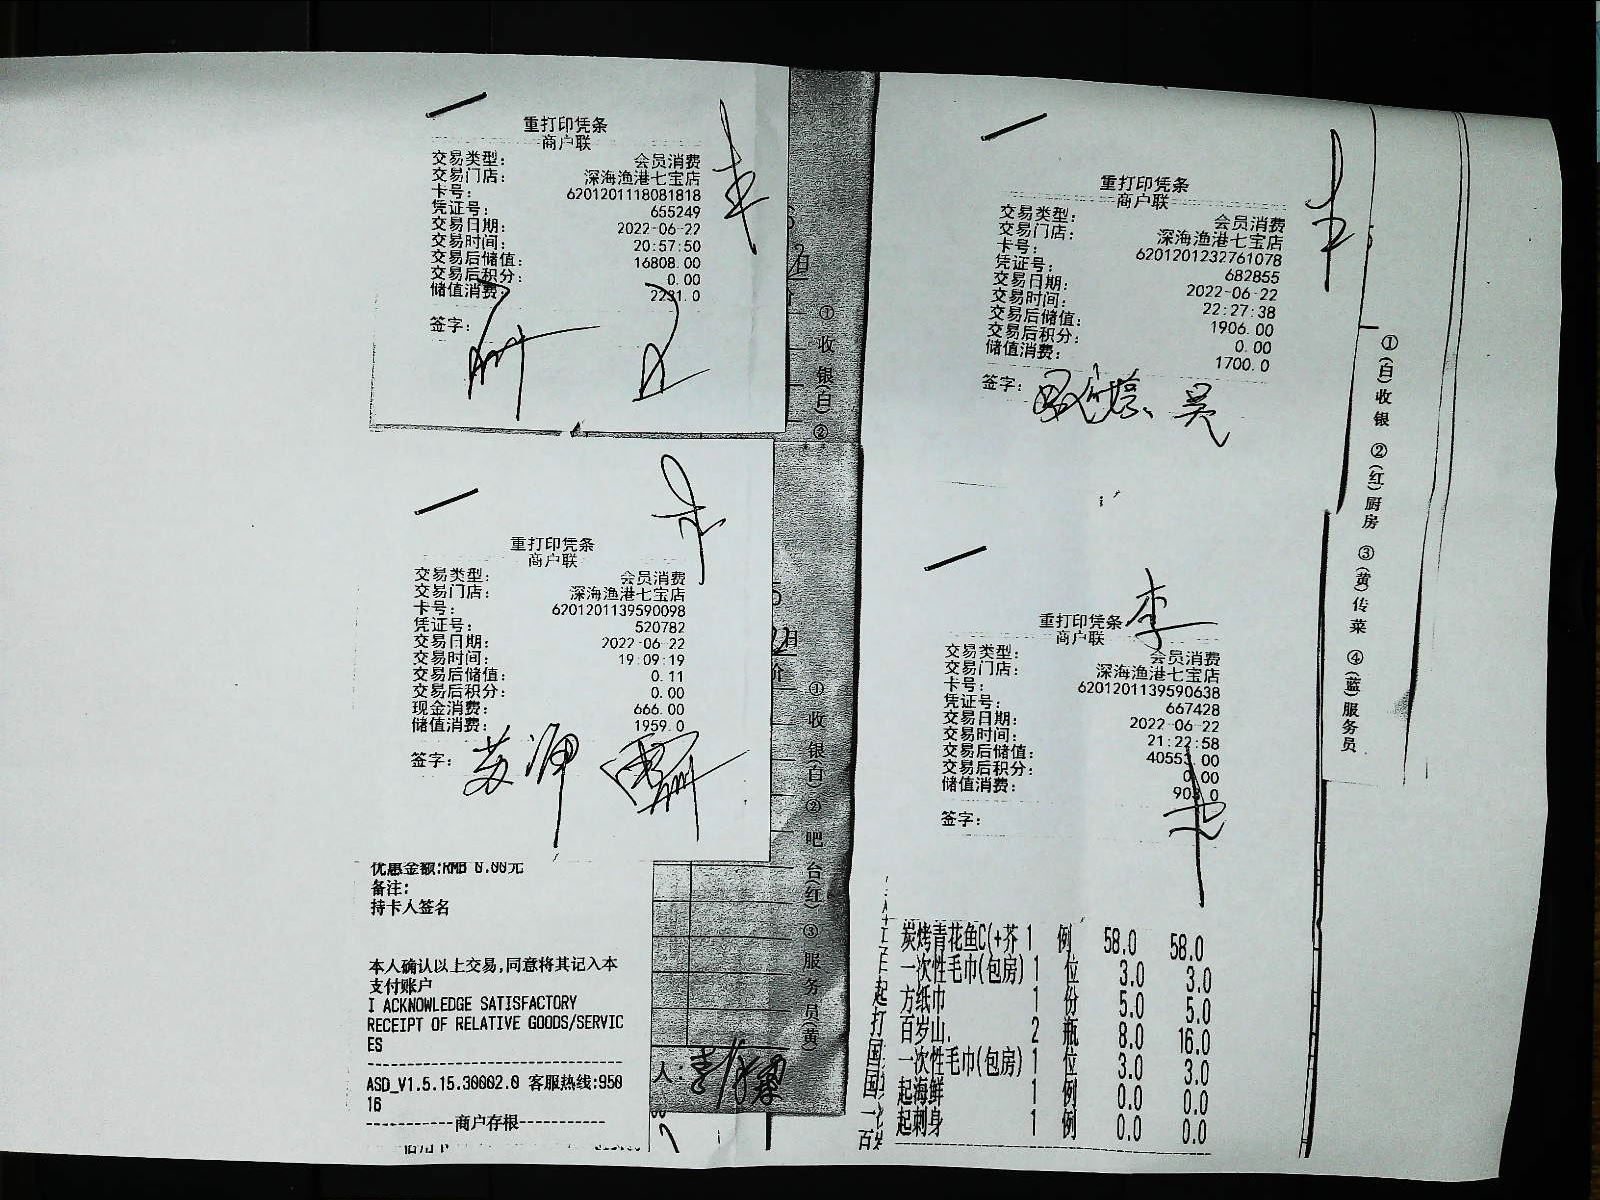 重打印凭条
商户联
交易类型: 会员消费
交易门店: 深海渔港七宝店
卡号: 6201201118081818
凭证号: 655249
交易日期: 2022-06-22
交易时间: 20:57:50
交易后储值: 16808.00
交易后积分: 0.00
储值消费: 2231.0
签字:
重打印凭条
商户联
交易类型: 会员消费
交易门店: 深海渔港七宝店
卡号: 6201201139590098
凭证号: 520782
交易日期: 2022-06-22
交易时间: 19:09:19
交易后储值: 0.11
交易后积分: 0.00
现金消费: 666.00
储值消费: 1959.0
签字:
优惠金额:RMB 0.00元
备注:
持卡人签名
本人确认以上交易,同意将其记入本
支付账户
I ACKNOWLEDGE SATISFACTORY
RECEIPT OF RELATIVE GOODS/SERVIC
ES
ASD_V1.5.15.30002.0 客服热线:950
16
-----------商户存根-----------
①收银(白)②
①收银(白)②吧台(红)③服务员(黄)
人:
重打印凭条
商户联
交易类型: 会员消费
交易门店: 深海渔港七宝店
卡号: 6201201232761078
凭证号: 682855
交易日期: 2022-06-22
交易时间: 22:27:38
交易后储值: 1906.00
交易后积分: 0.00
储值消费: 1700.0
签字: 吴
李
重打印凭条
商户联
交易类型: 会员消费
交易门店: 深海渔港七宝店
卡号: 6201201139590638
凭证号: 667428
交易日期: 2022-06-22
交易时间: 21:22:58
交易后储值: 40553.00
交易后积分: 0.00
储值消费: 903.0
签字:
炭烤青花鱼C(+芥 1 例 58.0 58.0
一次性毛巾(包房) 1 位 3.0 3.0
方纸巾 1 份 5.0 5.0
百岁山. 2 瓶 8.0 16.0
一次性毛巾(包房) 1 位 3.0 3.0
起海鲜 1 例 0.0 0.0
起刺身 1 例 0.0 0.0
①(白)收银 ②(红)厨房 ③(黄)传菜 ④(蓝)服务员